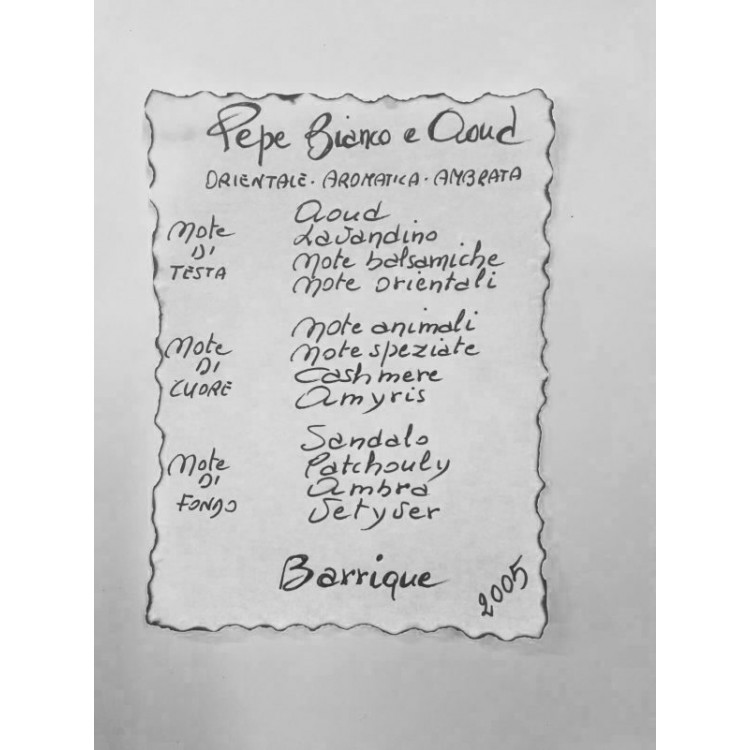 Pepe Bianco e Aoud
ORIENTALE. AROMATICA. AMBRATA
Note
DI
TESTA
Aoud
Lavandino
Note balsamiche
Note orientali
Note
DI
CUORE
Note animali
Note speziate
Cashmere
Amyris
Note
DI
FONDO
Sandalo
Patchouly
Ambra
Vetyver
Barrique
2005